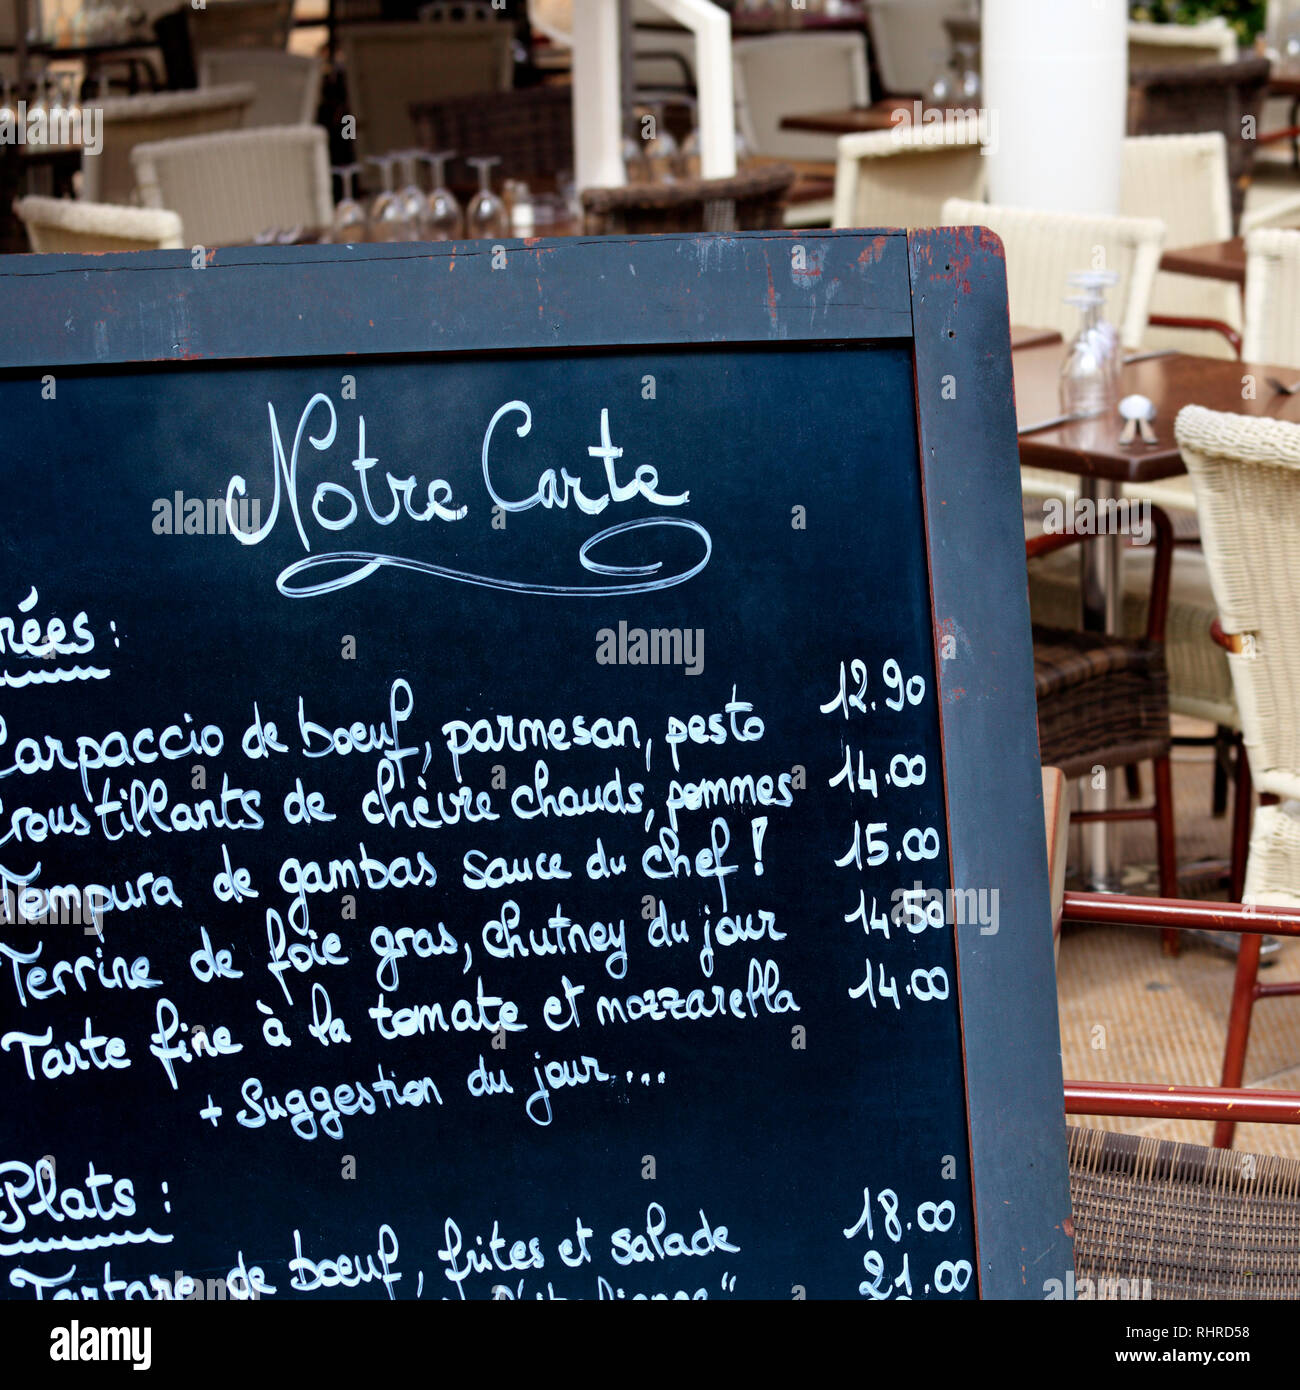 Notre Carte
rées :
Carpaccio de boeuf, parmesan, pesto 12.90
Croustillants de chèvre chauds, pommes 14.00
Tempura de gambas sauce du chef ! 15.00
Terrine de foie gras, chutney du jour 14.50
Tarte fine à la tomate et mozzarella 14.00
+ Suggestion du jour...
Plats :
Tartare de boeuf, frites et salade 18.00
21.00
alamy
Image ID: RHRD58
www.alamy.com